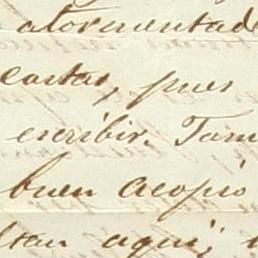 atormentad
cartas, pues
escribir. Tam
buen acopio
ltan aqui;